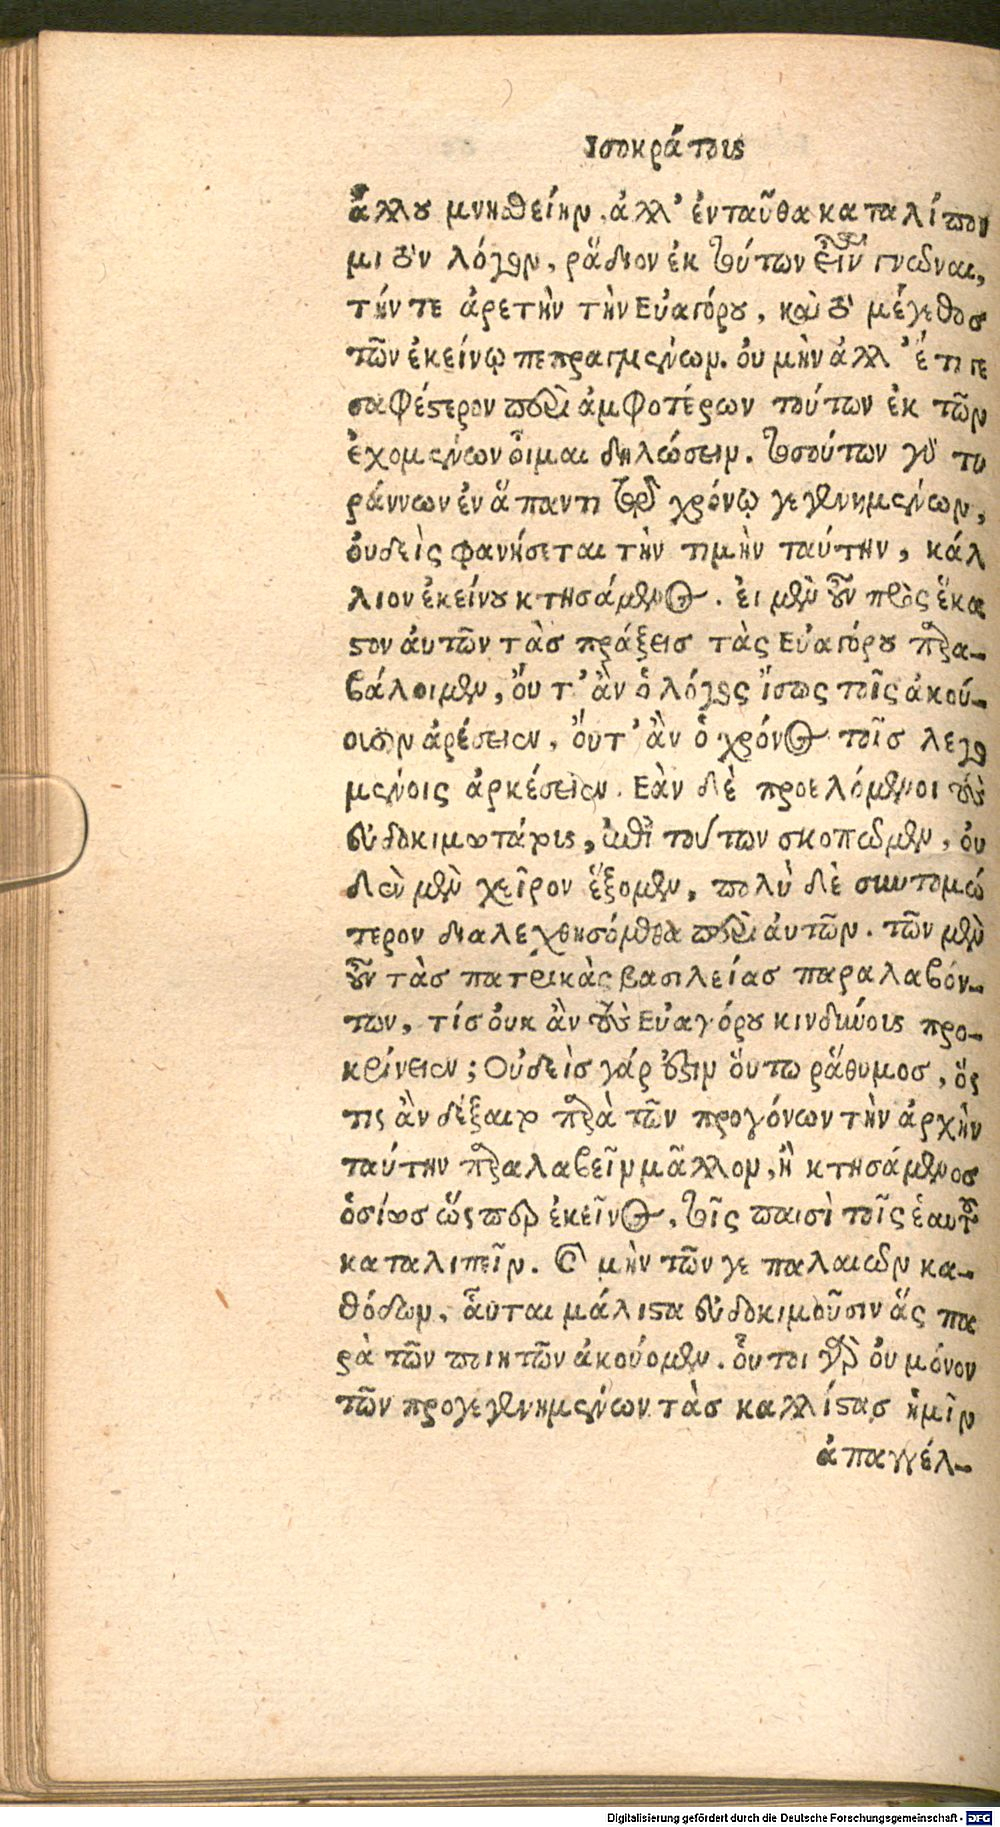 Ισοκράτους
ἄλλου μνηθείην, ἀλλ' ἐνταῦθα καταλίποι
μι τὸν λόγον, ῥᾴδιον ἐκ τούτων ἐστὶν γνῶναι,
τήν τε ἀρετὴν τὴν Εὐαγόρου, καὶ τὸ μέγεθος
τῶν ἐκείνῳ πεπραγμένων. οὐ μὴν ἀλλ' ἔτι γε
σαφέστερον περὶ ἀμφοτέρων τούτων ἐκ τῶν
ἐχομένων οἶμαι δηλώσειν. τοσούτων γὰρ τυ
ράννων ἐν ἅπαντι τῷ χρόνῳ γεγενημένων,
οὐδεὶς φανήσεται τὴν τιμὴν ταύτην, κάλ
λιον ἐκείνου κτησάμενος. εἰ μὲν οὖν πρὸς ἕκα
στον αὐτῶν τὰς πράξεις τὰς Εὐαγόρου παρα-
βάλοιμεν, οὔτ' ἂν ὁ λόγος ἴσως τοῖς ἀκού-
ουσιν ἀρέσειεν, οὔτ' ἂν ὁ χρόνος τοῖς λεγο
μένοις ἀρκέσειεν. Ἐὰν δὲ προελόμενοι τοὺς
εὐδοκιμωτάτους, ἐπὶ τούτων σκοπῶμεν, οὐ
δὲν μὲν χεῖρον ἕξομεν, πολὺ δὲ συντομώ
τερον διαλεχθησόμεθα περὶ αὐτῶν. τῶν μὲν
οὖν τὰς πατρικὰς βασιλείας παραλαβόν-
των, τίς οὐκ ἂν τοὺς Εὐαγόρου κινδύνους προ-
κρίνειεν; Οὐδεὶς γάρ ἐστιν οὕτω ῥᾴθυμος, ὅς
τις ἂν δέξαιτο παρὰ τῶν προγόνων τὴν ἀρχὴν
ταύτην παραλαβεῖν μᾶλλον, ἢ κτησάμενος
ὁσίως ὥσπερ ἐκεῖνος, τοῖς παισὶ τοῖς ἑαυτοῦ
καταλιπεῖν. Καὶ μὴν τῶν γε παλαιῶν κα-
θόδων, αὗται μάλιστα εὐδοκιμοῦσιν ἃς πα
ρὰ τῶν ποιητῶν ἀκούομεν. οὗτοι γὰρ οὐ μόνον
τῶν προγεγενημένων τὰς καλλίστας ἡμῖν
ἀπαγγέλ-
Digitalisierung gefördert durch die Deutsche Forschungsgemeinschaft - DFG